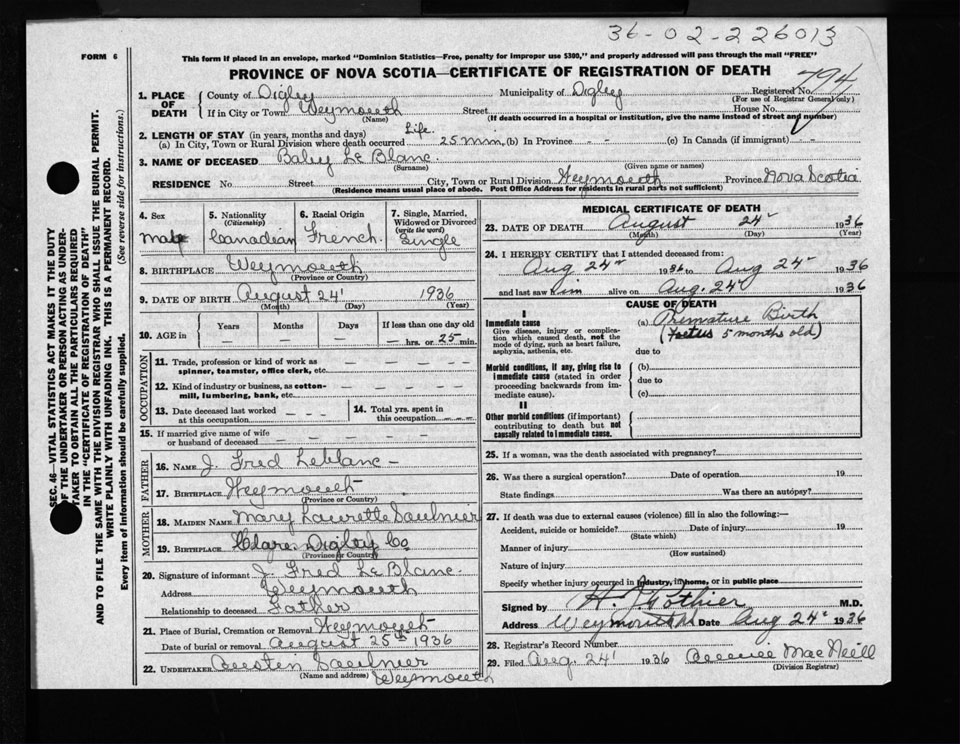 36-02-226013
FORM 6
This form if placed in an envelope, marked "Dominion Statistics—Free, penalty for improper use $300," and properly addressed will pass through the mail "FREE"
PROVINCE OF NOVA SCOTIA—CERTIFICATE OF REGISTRATION OF DEATH
794
1. PLACE OF DEATH
County of Digby Municipality of Digby Registered No.
(For use of Registrar General only)
If in City or Town Weymouth Street House No.
(Name) (If death occurred in a hospital or institution, give the name instead of street and number)
2. LENGTH OF STAY (in years, months and days) Life.
(a) In City, Town or Rural Division where death occurred 25 min, (b) In Province - - (c) In Canada (if immigrant) -
3. NAME OF DECEASED Baby Le Blanc.
(Surname) (Given name or names)
RESIDENCE No Street City, Town or Rural Division Weymouth Province Nova Scotia
(Residence means usual place of abode. Post Office Address for residents in rural parts not sufficient)
4. Sex
male
5. Nationality
(Citizenship)
Canadian
6. Racial Origin
French.
7. Single, Married, Widowed or Divorced
(write the word)
Single
8. BIRTHPLACE Weymouth
(Province or Country)
9. DATE OF BIRTH August 24' 1936
(Month) (Day) (Year)
10. AGE in
Years Months Days If less than one day old
— — — — hrs. or 25 min.
OCCUPATION
11. Trade, profession or kind of work as spinner, teamster, office clerk, etc. — — — — —
12. Kind of industry or business, as cotton-mill, lumbering, bank, etc. — — — — —
13. Date deceased last worked at this occupation - - -
14. Total yrs. spent in this occupation — — —
15. If married give name of wife or husband of deceased — — — — —
FATHER
16. NAME J. Fred Leblanc -
17. BIRTHPLACE Weymouth
(Province or Country)
MOTHER
18. MAIDEN NAME Mary Laurette Saulnier
19. BIRTHPLACE Clare Digby Co
(Province or Country)
20. Signature of informant J. Fred Le Blanc.
Address Weymouth
Relationship to deceased Father
21. Place of Burial, Cremation or Removal Weymouth
Date of burial or removal August 25th 1936
22. UNDERTAKER Saulnier
(Name and address) Weymouth
MEDICAL CERTIFICATE OF DEATH
23. DATE OF DEATH August 24" 1936
(Month) (Day) (Year)
24. I HEREBY CERTIFY that I attended deceased from:
Aug 24" 1936 to Aug 24" 1936
and last saw him alive on Aug. 24" 1936
CAUSE OF DEATH
I
Immediate cause
Give disease, injury or complication which caused death, not the mode of dying, such as heart failure, asphyxia, asthenia, etc.
(a) Premature Birth
(Foetus 5 months old)
due to
Morbid conditions, if any, giving rise to immediate cause (stated in order proceeding backwards from immediate cause).
(b)
due to
(c)
II
Other morbid conditions (if important) contributing to death but not causally related to immediate cause.
25. If a woman, was the death associated with pregnancy?
26. Was there a surgical operation? Date of operation 19
State findings Was there an autopsy?
27. If death was due to external causes (violence) fill in also the following:—
Accident, suicide or homicide? Date of injury 19
(State which)
Manner of injury
(How sustained)
Nature of injury
Specify whether injury occurred in industry, in home, or in public place
Signed by H. J. Pothier M.D.
Address Weymouth NS Date Aug 24" 1936
28. Registrar's Record Number
29. Filed Aug. 24' 1936 MacNeill
(Division Registrar)
SEC. 46—VITAL STATISTICS ACT MAKES IT THE DUTY
OF THE UNDERTAKER OR PERSON ACTING AS UNDER-
TAKER TO OBTAIN ALL THE PARTICULARS REQUIRED
IN THE "CERTIFICATE OF REGISTRATION OF DEATH"
AND TO FILE THE SAME WITH THE DIVISION REGISTRAR WHO SHALL ISSUE THE BURIAL PERMIT.
WRITE PLAINLY WITH UNFADING INK. THIS IS A PERMANENT RECORD.
Every item of information should be carefully supplied. (See reverse side for instructions.)